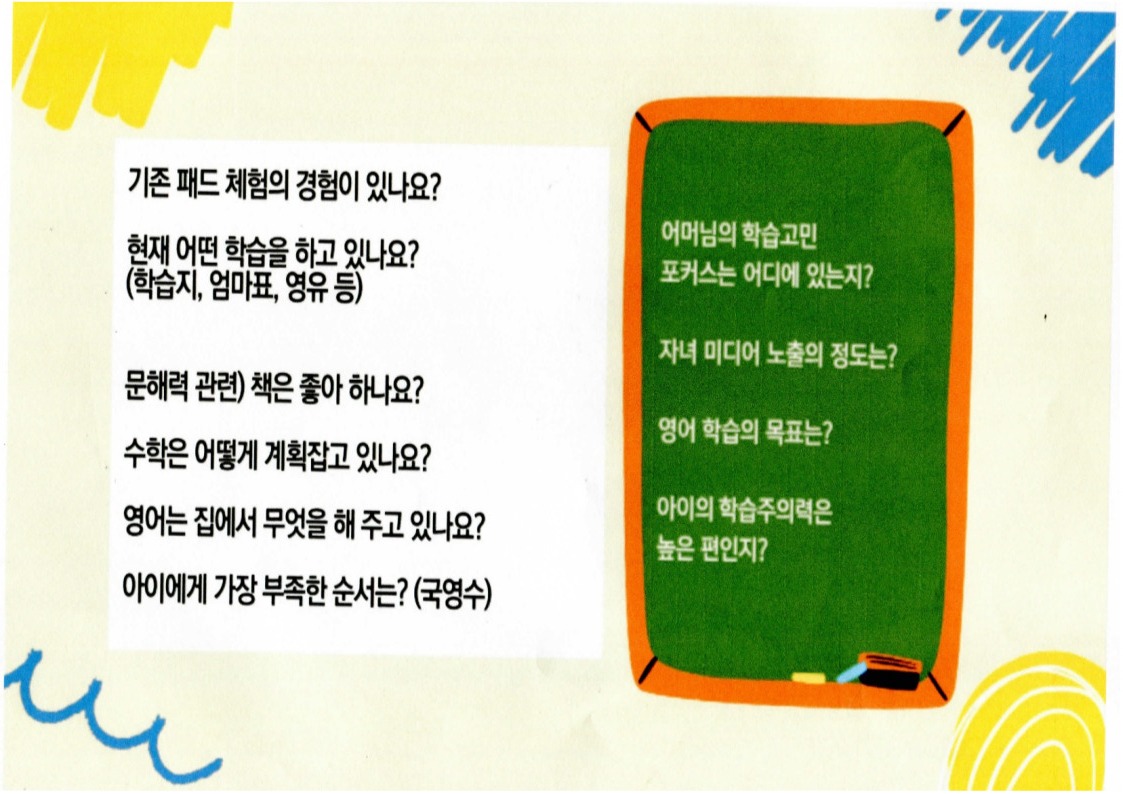 기존 패드 체험의 경험이 있나요?
현재 어떤 학습을 하고 있나요?
(학습지, 엄마표, 영유 등)
문해력 관련) 책은 좋아 하나요?
수학은 어떻게 계획잡고 있나요?
영어는 집에서 무엇을 해 주고 있나요?
아이에게 가장 부족한 순서는? (국영수)
어머님의 학습고민
포커스는 어디에 있는지?
자녀 미디어 노출의 정도는?
영어 학습의 목표는?
아이의 학습주의력은
높은 편인지?